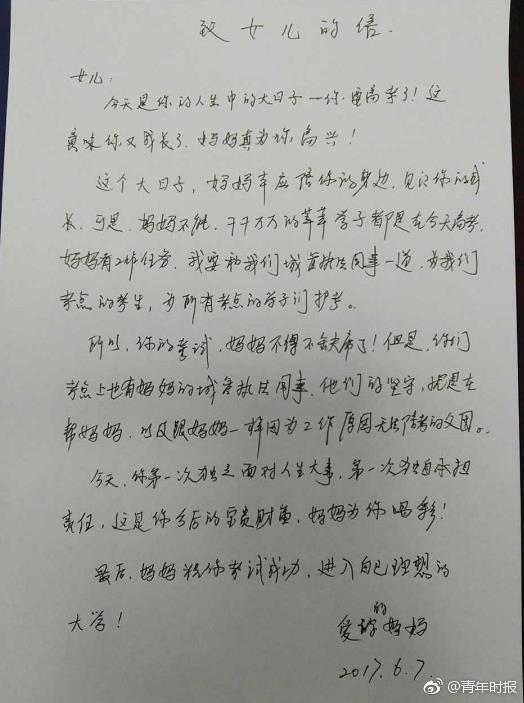 致女儿的信.
女儿：
今天是你的人生中的大日子一你要高考了！这
意味你又成长了.妈妈真为你高兴！
这个大日子，妈妈本应陪你的身边，见证你的成
长.可是.妈妈不能.千千万万的莘莘学子都是在今天高考.
妈妈有工作任务.我要和我们城管执法同事一道，为我们
考点的考生，为所有考点的学子们护考。
所以，你的考试，妈妈不得不缺席了！但是，你们
考点上也有妈妈的城管执法同事.他们的坚守，就是在
帮妈妈.以及跟妈妈一样因为工作原因无法陪考的父母。
今天，你第一次独立面对人生大事，第一次独自承担
责任，这是你今后的宝贵财富，妈妈为你喝彩！
最后.妈妈祝你考试成功，进入自己理想的
大学！
爱你的妈妈
2017.6.7.
@青年时报